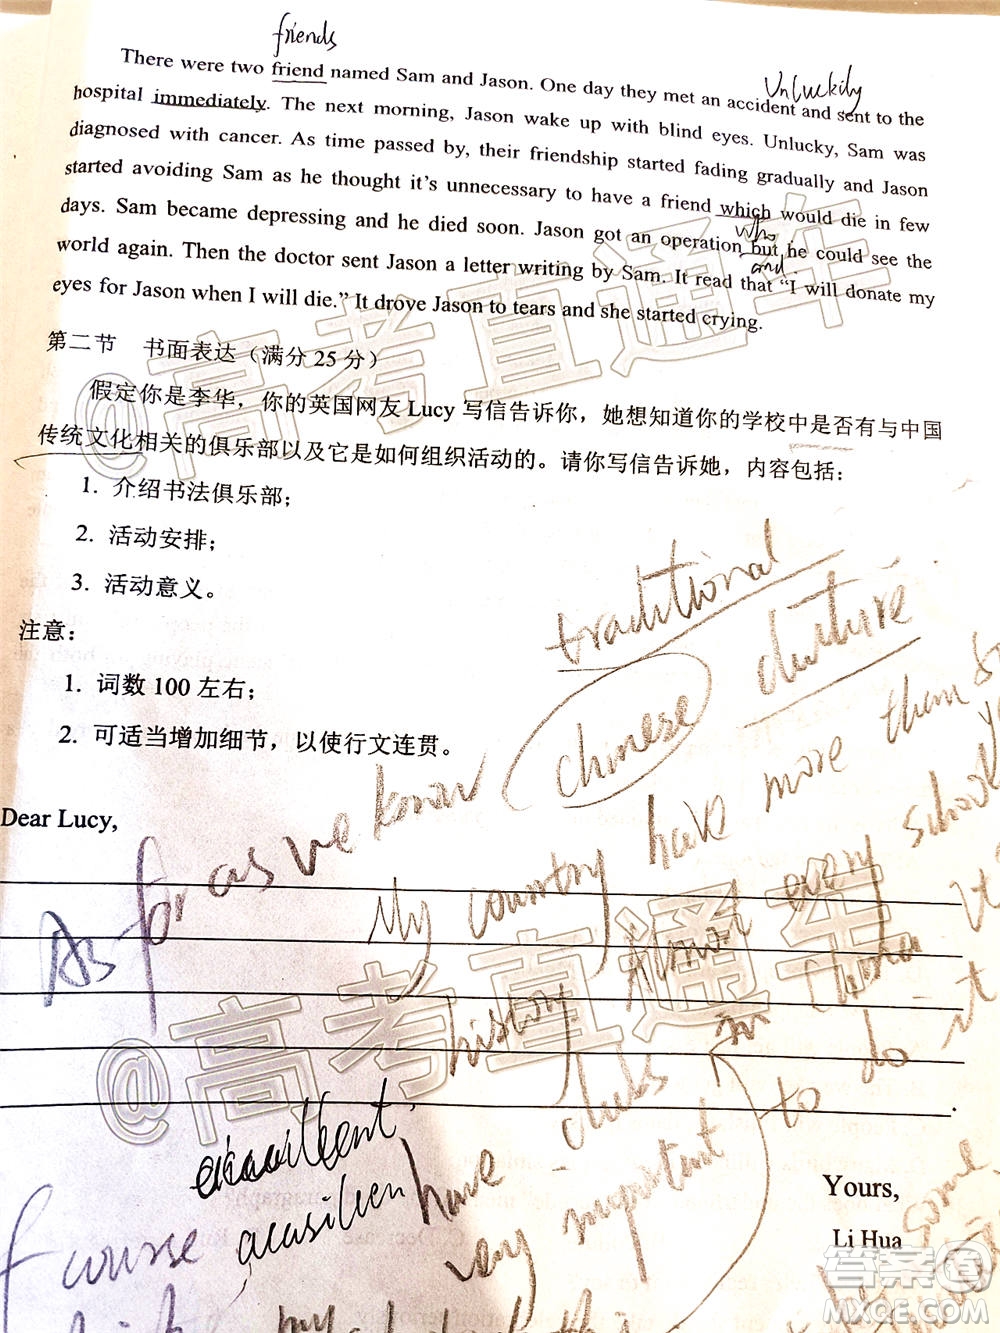 friends
There were two friend named Sam and Jason. One day they met an accident and sent to the
Unluckily
hospital immediately. The next morning, Jason wake up with blind eyes. Unlucky, Sam was
diagnosed with cancer. As time passed by, their friendship started fading gradually and Jason
started avoiding Sam as he thought it's unnecessary to have a friend which would die in few
who
days. Sam became depressing and he died soon. Jason got an operation but he could see the
and
world again. Then the doctor sent Jason a letter writing by Sam. It read that “I will donate my
eyes for Jason when I will die.” It drove Jason to tears and she started crying.
第二节 书面表达（满分 25 分）
假定你是李华，你的英国网友 Lucy 写信告诉你，她想知道你的学校中是否有与中国
传统文化相关的俱乐部以及它是如何组织活动的。请你写信告诉她，内容包括：
1. 介绍书法俱乐部；
2. 活动安排；
3. 活动意义。
注意：
1. 词数 100 左右；
2. 可适当增加细节，以使行文连贯。
traditional
chinese culture
Dear Lucy,
As for as we know
My country have more them
history Almost every school
have clubs in China
very important to do it
of course
my
some
Yours,
Li Hua
@高考直通车
@高考直通车
答案圈
MXQE.COM